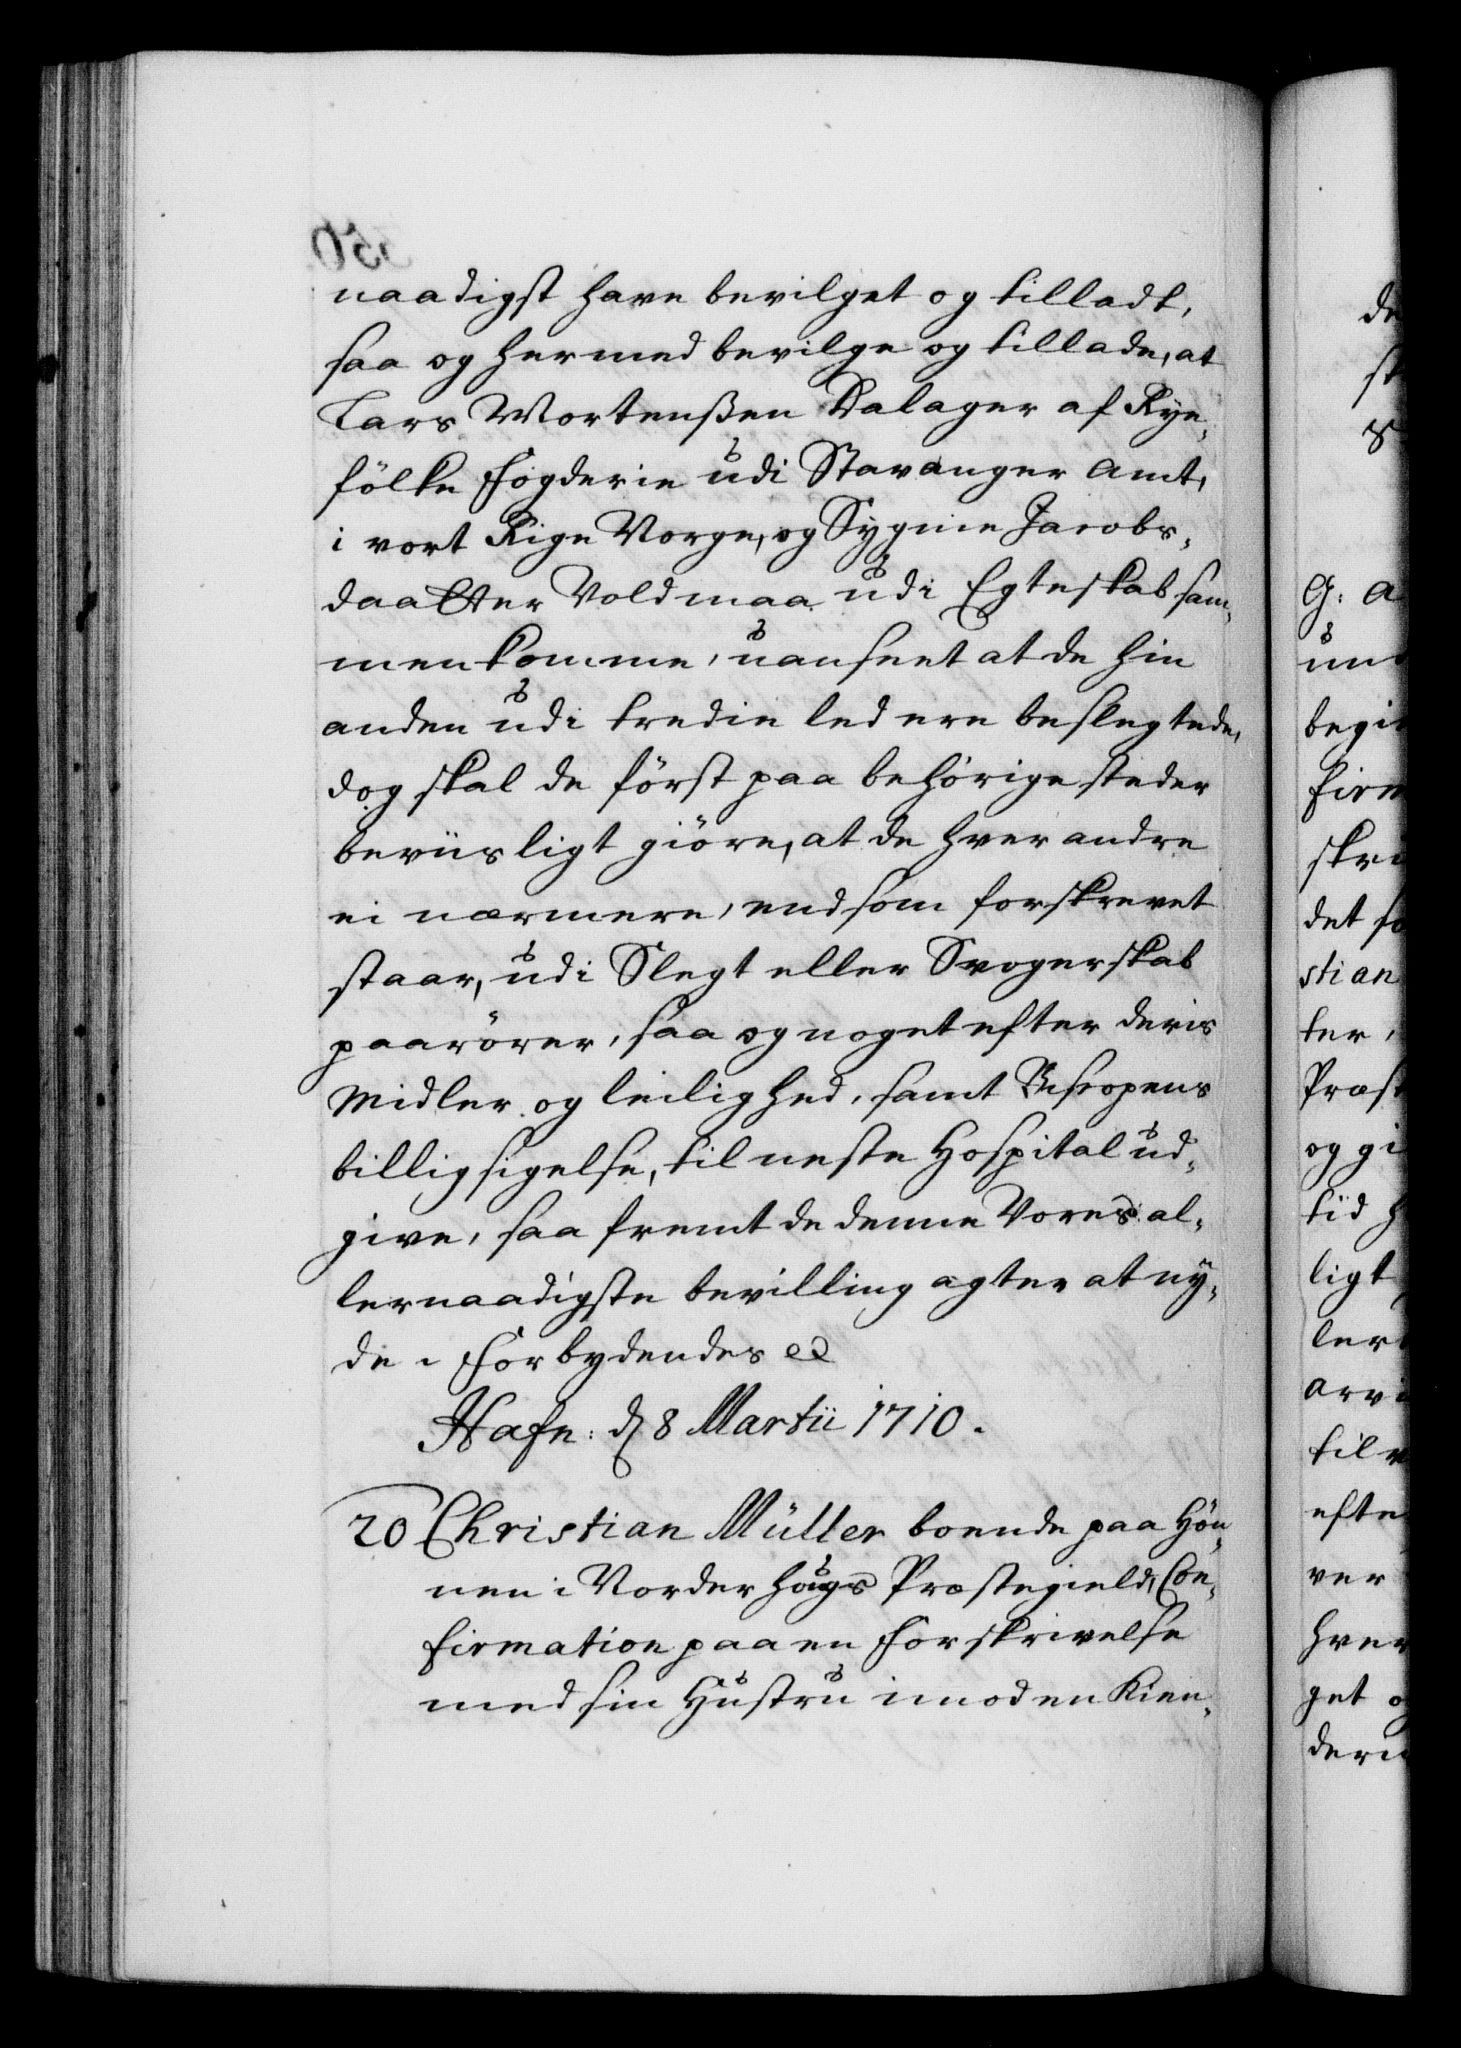 naadigst have bevilget og tilladt,
saa og hermed bevilge og tillade, at
Lars Mortenßen Dalager af Rye-
fölke Fogderie udi Stavanger Amt,
i vort Rige Norge, og Sygnie Jacobs-
daatter Voldmaa udi Egteskab sam-
menkomme, uanseet at de hin
anden udi tredie led ere beslegtede,
dog skal de först paa behörige steder
beviisligt giöre, at de hverandre
ei nærmere, end som forskrevet
staar, udi Slegt eller Svogerskab
paarörer, saa og noget efter deris
Midler og leilighed, samt Biscopens
billigsigelse, til neste Hospital ud-
give, saa fremt de denne Vores al-
lernaadigste bevilling agter at ny-
de. Forbydendes
Hafn: d 8 Martii 1710.
20 Christian Müller boende paa Hön-
nen i Norderhougs Præstegield, Con-
firmation paa en Forskrivelse
med sin Hustru imod en Kien-
de
st
S
G: A
un
begi
firm
skri
det so
stian
ter,
Præst
og gi
tid h
ligt
ler
arvi
til
efte
ver
hver
get o
deri